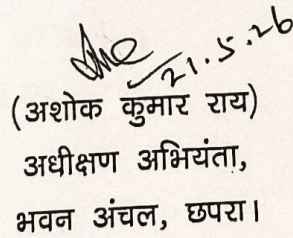 21.5.26
(अशोक कुमार राय)
अधीक्षण अभियंता,
भवन अंचल, छपरा।